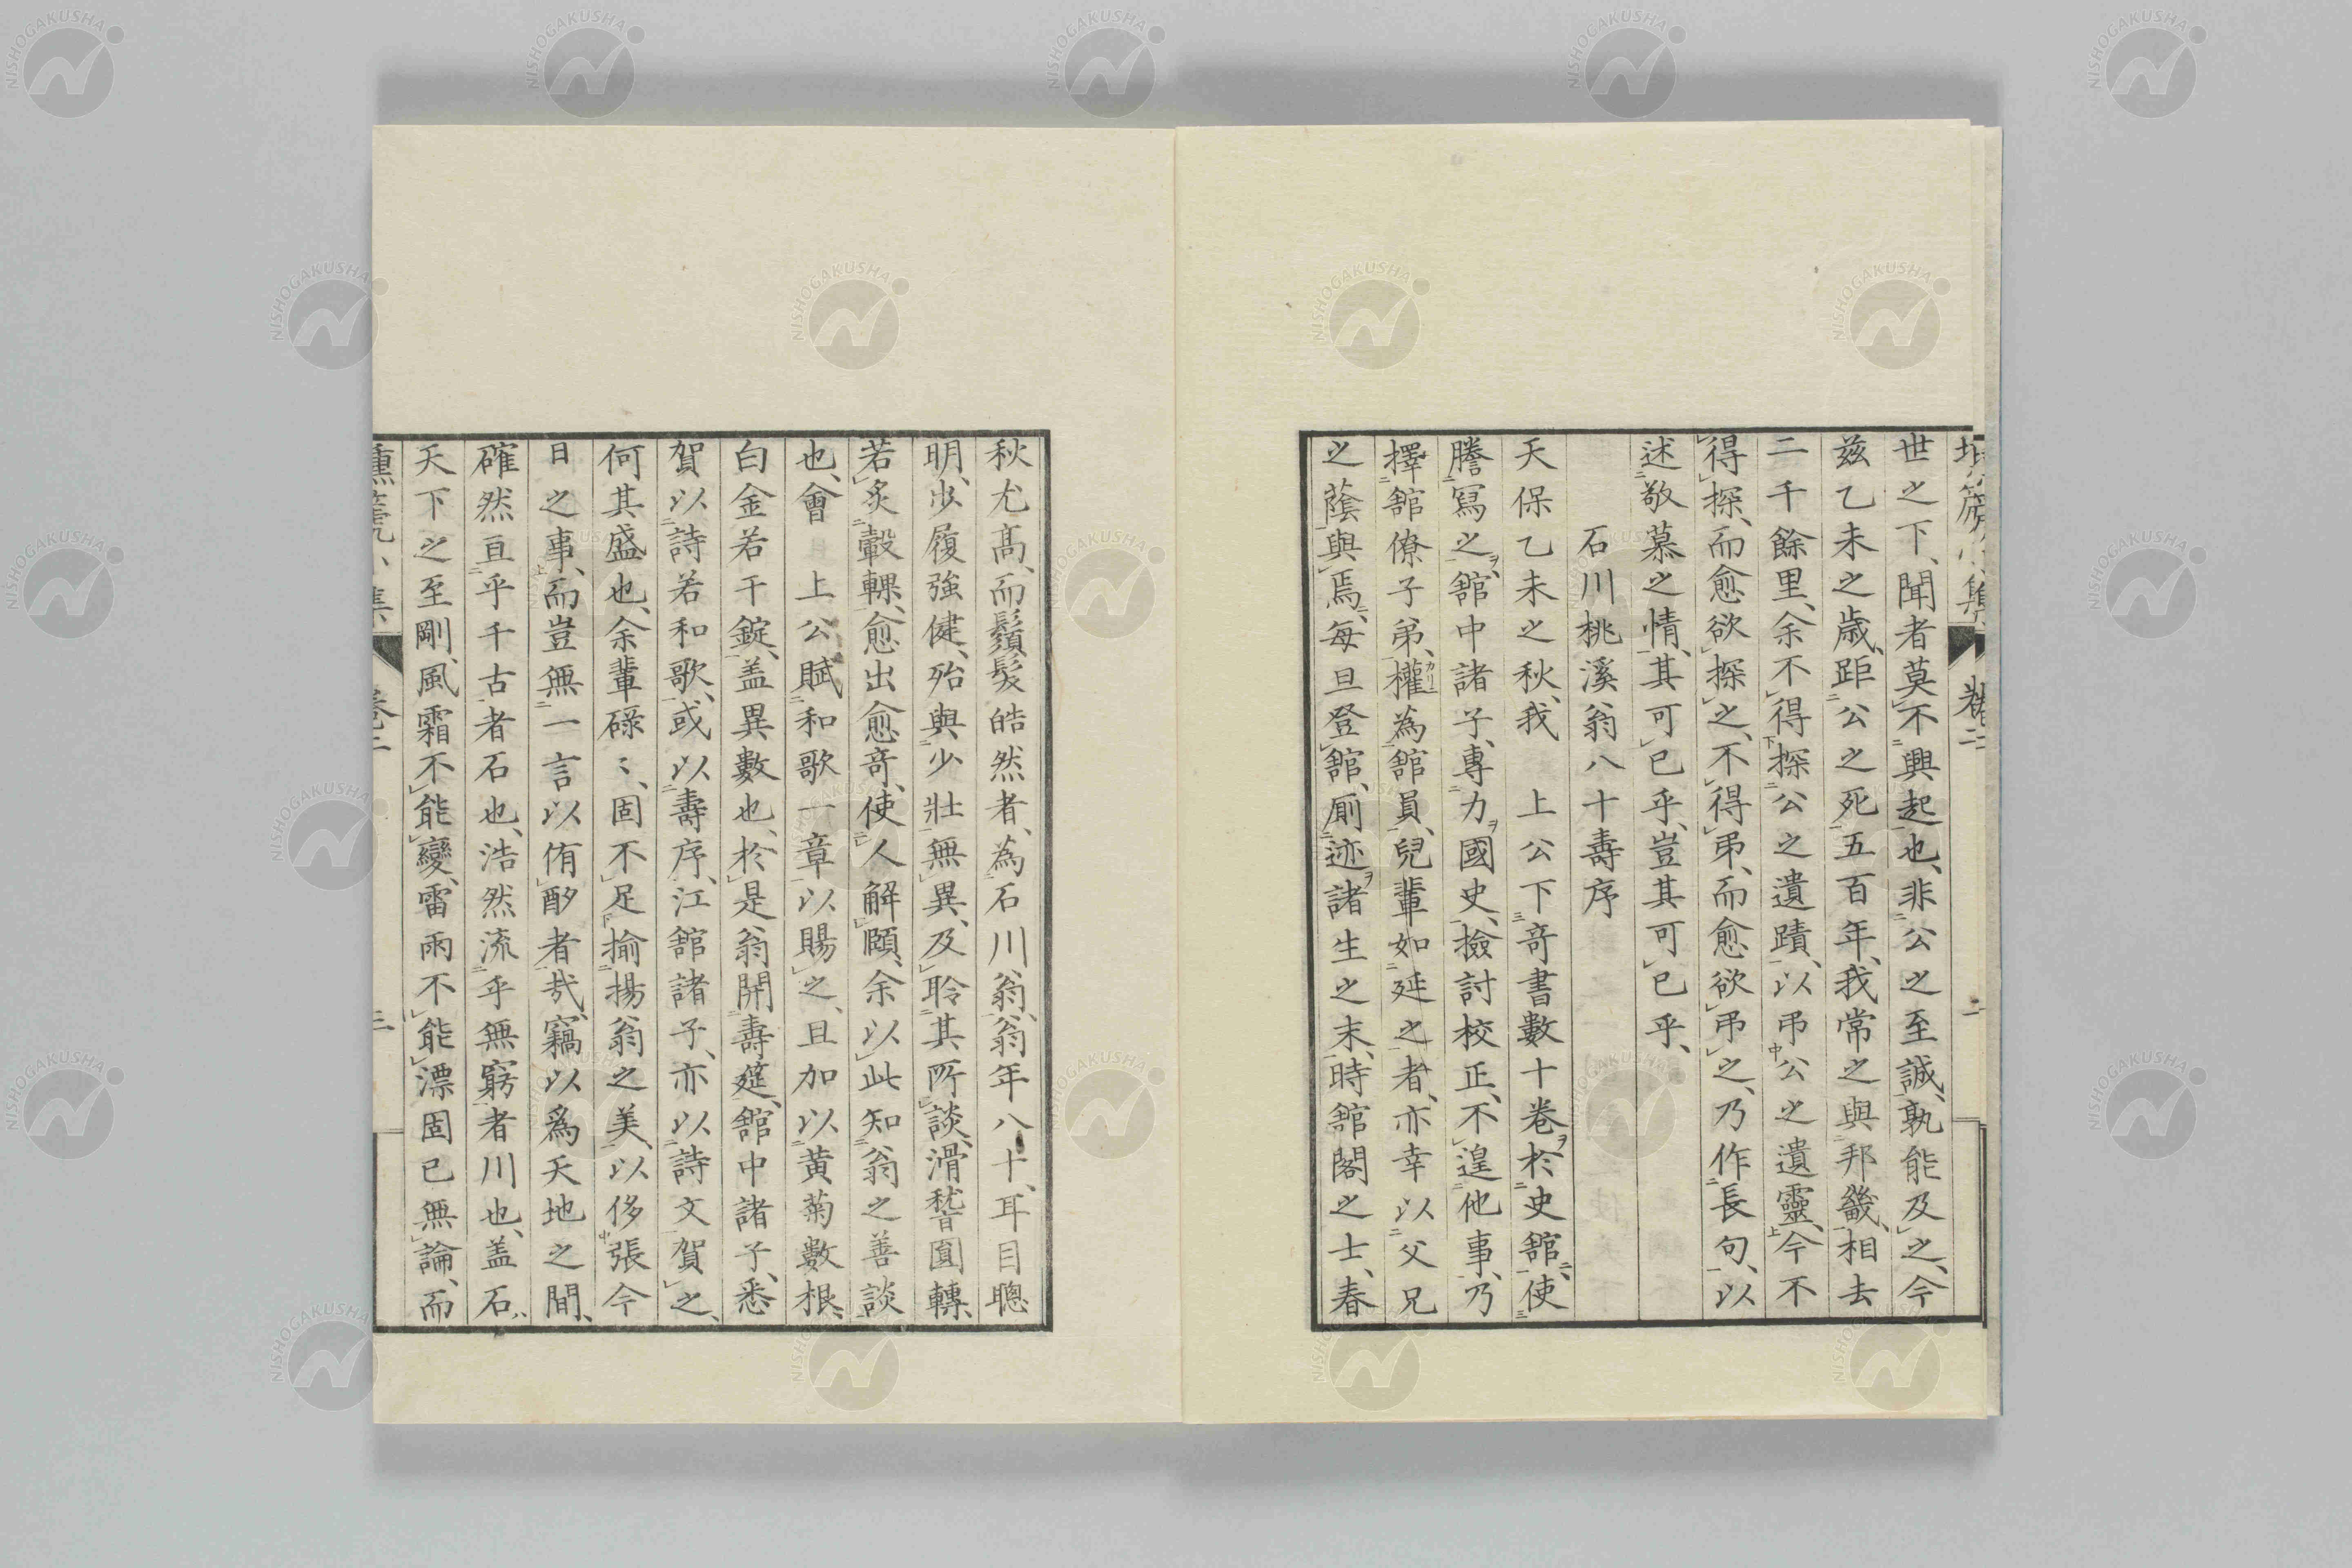 世之下、聞者莫不興起也、非公之至誠、孰能及之、今
茲乙未之歳、距公之死五百年、我常之與邦畿、相去
二千餘里、余不得探公之遺蹟、以弔公之遺靈、今不
得探、而愈欲探之、不得弔、而愈欲弔之、乃作長句、以
述敬慕之情、其可已乎、豈其可已乎、
石川桃溪翁八十壽序
天保乙未之秋、我 上公下竒書數十卷於史舘、使
謄寫之、舘中諸子、專力國史、撿討校正、不遑他事、乃
擇舘僚子弟、權為舘員、兒輩如延之者、亦幸以父兄
之蔭與焉、每旦登舘、厠迹諸生之末、時舘閣之士、春
秋尤髙、而鬚髮皓然者、為石川翁、翁年八十、耳目聰
明、步履強健、殆與少壯無異、及聆其所談、滑稽圎轉、
若炙轂輠、愈出愈竒、使人解頤、余以此知翁之善談
也、會 上公賦和歌一章以賜之、且加以黃菊數根、
白金若干錠、盖異數也、於是翁開壽筵、舘中諸子、悉
賀以詩若和歌、或以壽序、江舘諸子、亦以詩文賀之、
何其盛也、余輩碌〻、固不足揄揚翁之美、以侈張今
日之事、而豈無一言以侑酌者哉、竊以爲天地之間、
確然亘乎千古者石也、浩然流乎無窮者川也、盖石
天下之至剛、風霜不能變、雷雨不能漂、固已無論、而
卷二
二
NISHOGAKUSHA